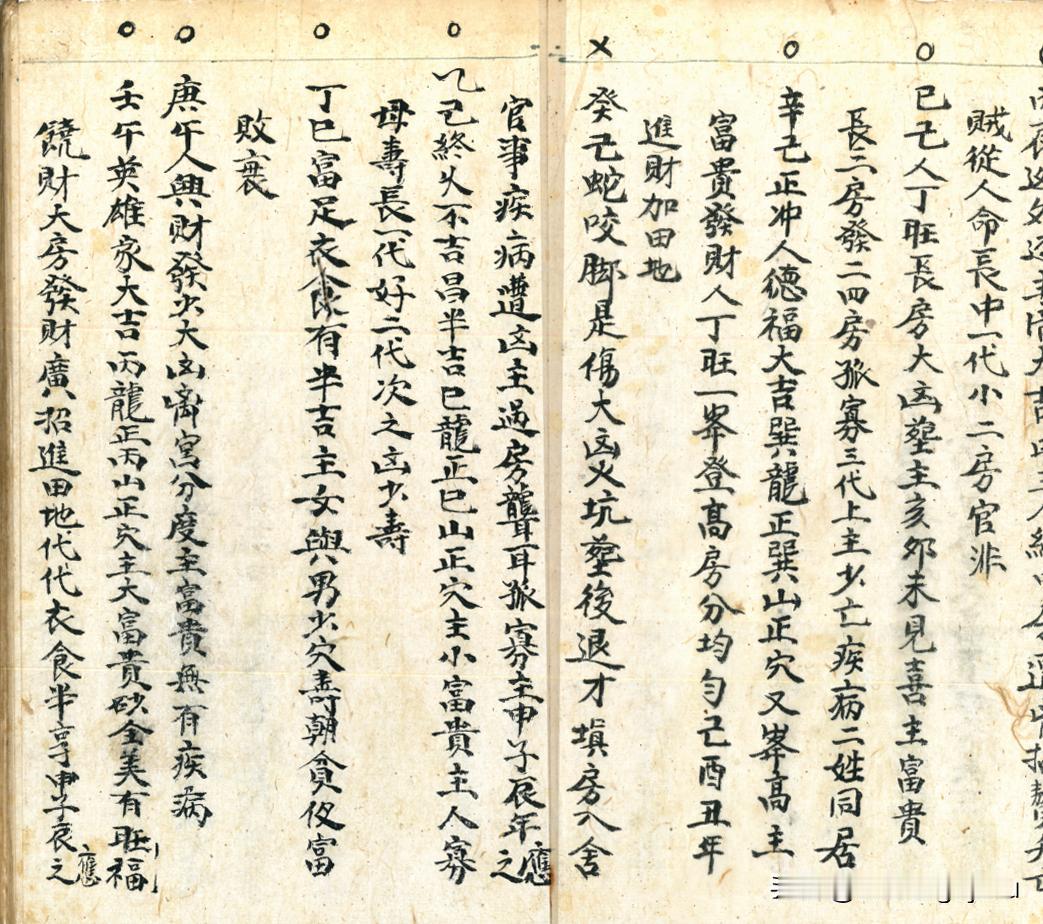 大吉
賊從人命長中一代小二房官非
己巳人丁旺長房大凶塟主亥卯未見喜主富貴
長二房發二四房孤寡三代上主少亡疾病二姓同居
辛巳正冲人德福大吉巽龍正巽山正穴又峯高主
富貴發財人丁旺一峯登高房分均匀己酉丑年
進財加田地
癸巳蛇咬脚是傷大凶火坑塟後退才填房入舍
官事疾病遭凶主過房聾耳孤寡主申子辰年應之
乙巳終火不吉昌半吉巳龍正巳山正穴主小富貴主人寡
母壽長一代好二代次之凶少壽
丁巳富足衣食限有半吉主女與男少穴壽朝貧夜富
敗衰
庚午人興財發少大凶窩宫分度主富貴無有疾病
壬午英雄家大吉丙龍正丙山正穴主大富貴砂全美有旺福
饒財大房發財廣招進田地代代衣食半亨申子辰之應